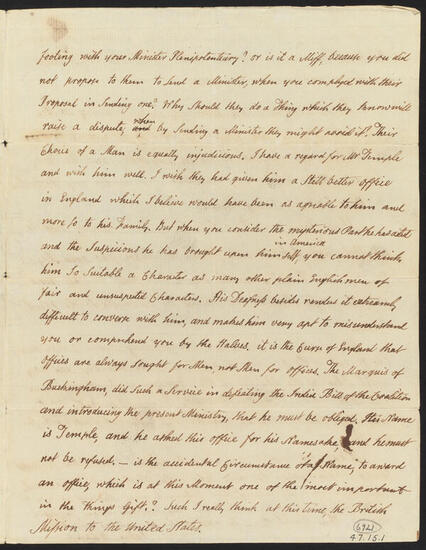 footing with your Minister Plenipotentiary? or is it a Miff, because you did
not propose to them to send a Minister, when you complyed with their
Proposal in Sending one? Why Should they do a Thing which they know will
raise a dispute, when by Sending a Minister they might avoid it? Their
Choice of a Man is equally injudicious. I have a regard for Mr Temple
and wish him well. I wish they had given him a Still better office
in England which I believe would have been as agreable to him and
more so to his Family. But when you consider the mysterious Part he has acted
in America
and the Suspicions he has brought upon himself you cannot think
him So Suitable a Character as many other plain Englishmen of
fair and unsuspected Characters. His Deafness besides renders it extreamly
difficult to converse with him, and makes him very apt to misunderstand
you or comprehend you by the Halves. it is the Curse of England that
offices are always sought for Men not Men for offices. The Marquis of
Buckingham, did Such a Service in defeating the India Bill of the Coalition
and introducing the present Ministry, that he must be obliged. His Name
is Temple, and he asked this office for his Namesake, and he must
not be refused. — is the accidental Circumstance of a Name, to award
an office, which is at this Moment one of the most important
in the Kings Gift? Such I really think at this time, the British
Mission to the United States.
6921
47.15.1